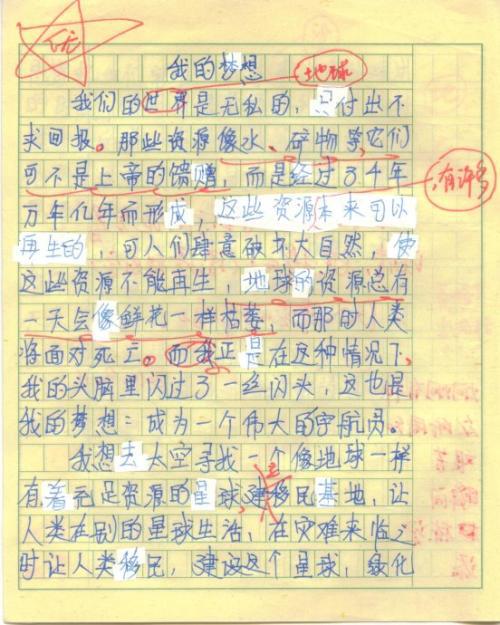 优
我的梦想
地球
我们的世界是无私的，只付出不
求回报。那些资源像水、矿物等，它们
可不是上帝的馈赠，而是经过了千年
有许多
万年亿年而形成，这些资源本来可以
再生的，可人们肆意破坏大自然，使
这些资源不能再生，地球的资源总有
一天会像鲜花一样枯萎，而那时人类
将面对死亡。而我正是在这种情况下，
我的头脑里闪过了一丝闪头，这也是
我的梦想：成为一个伟大的宇航员。
我想去太空寻找一个像地球一样
有着充足资源的星球，建移民基地，让
人类在别的星球生活，在灾难来临之
时让人类移民，建设这个星球，绿化